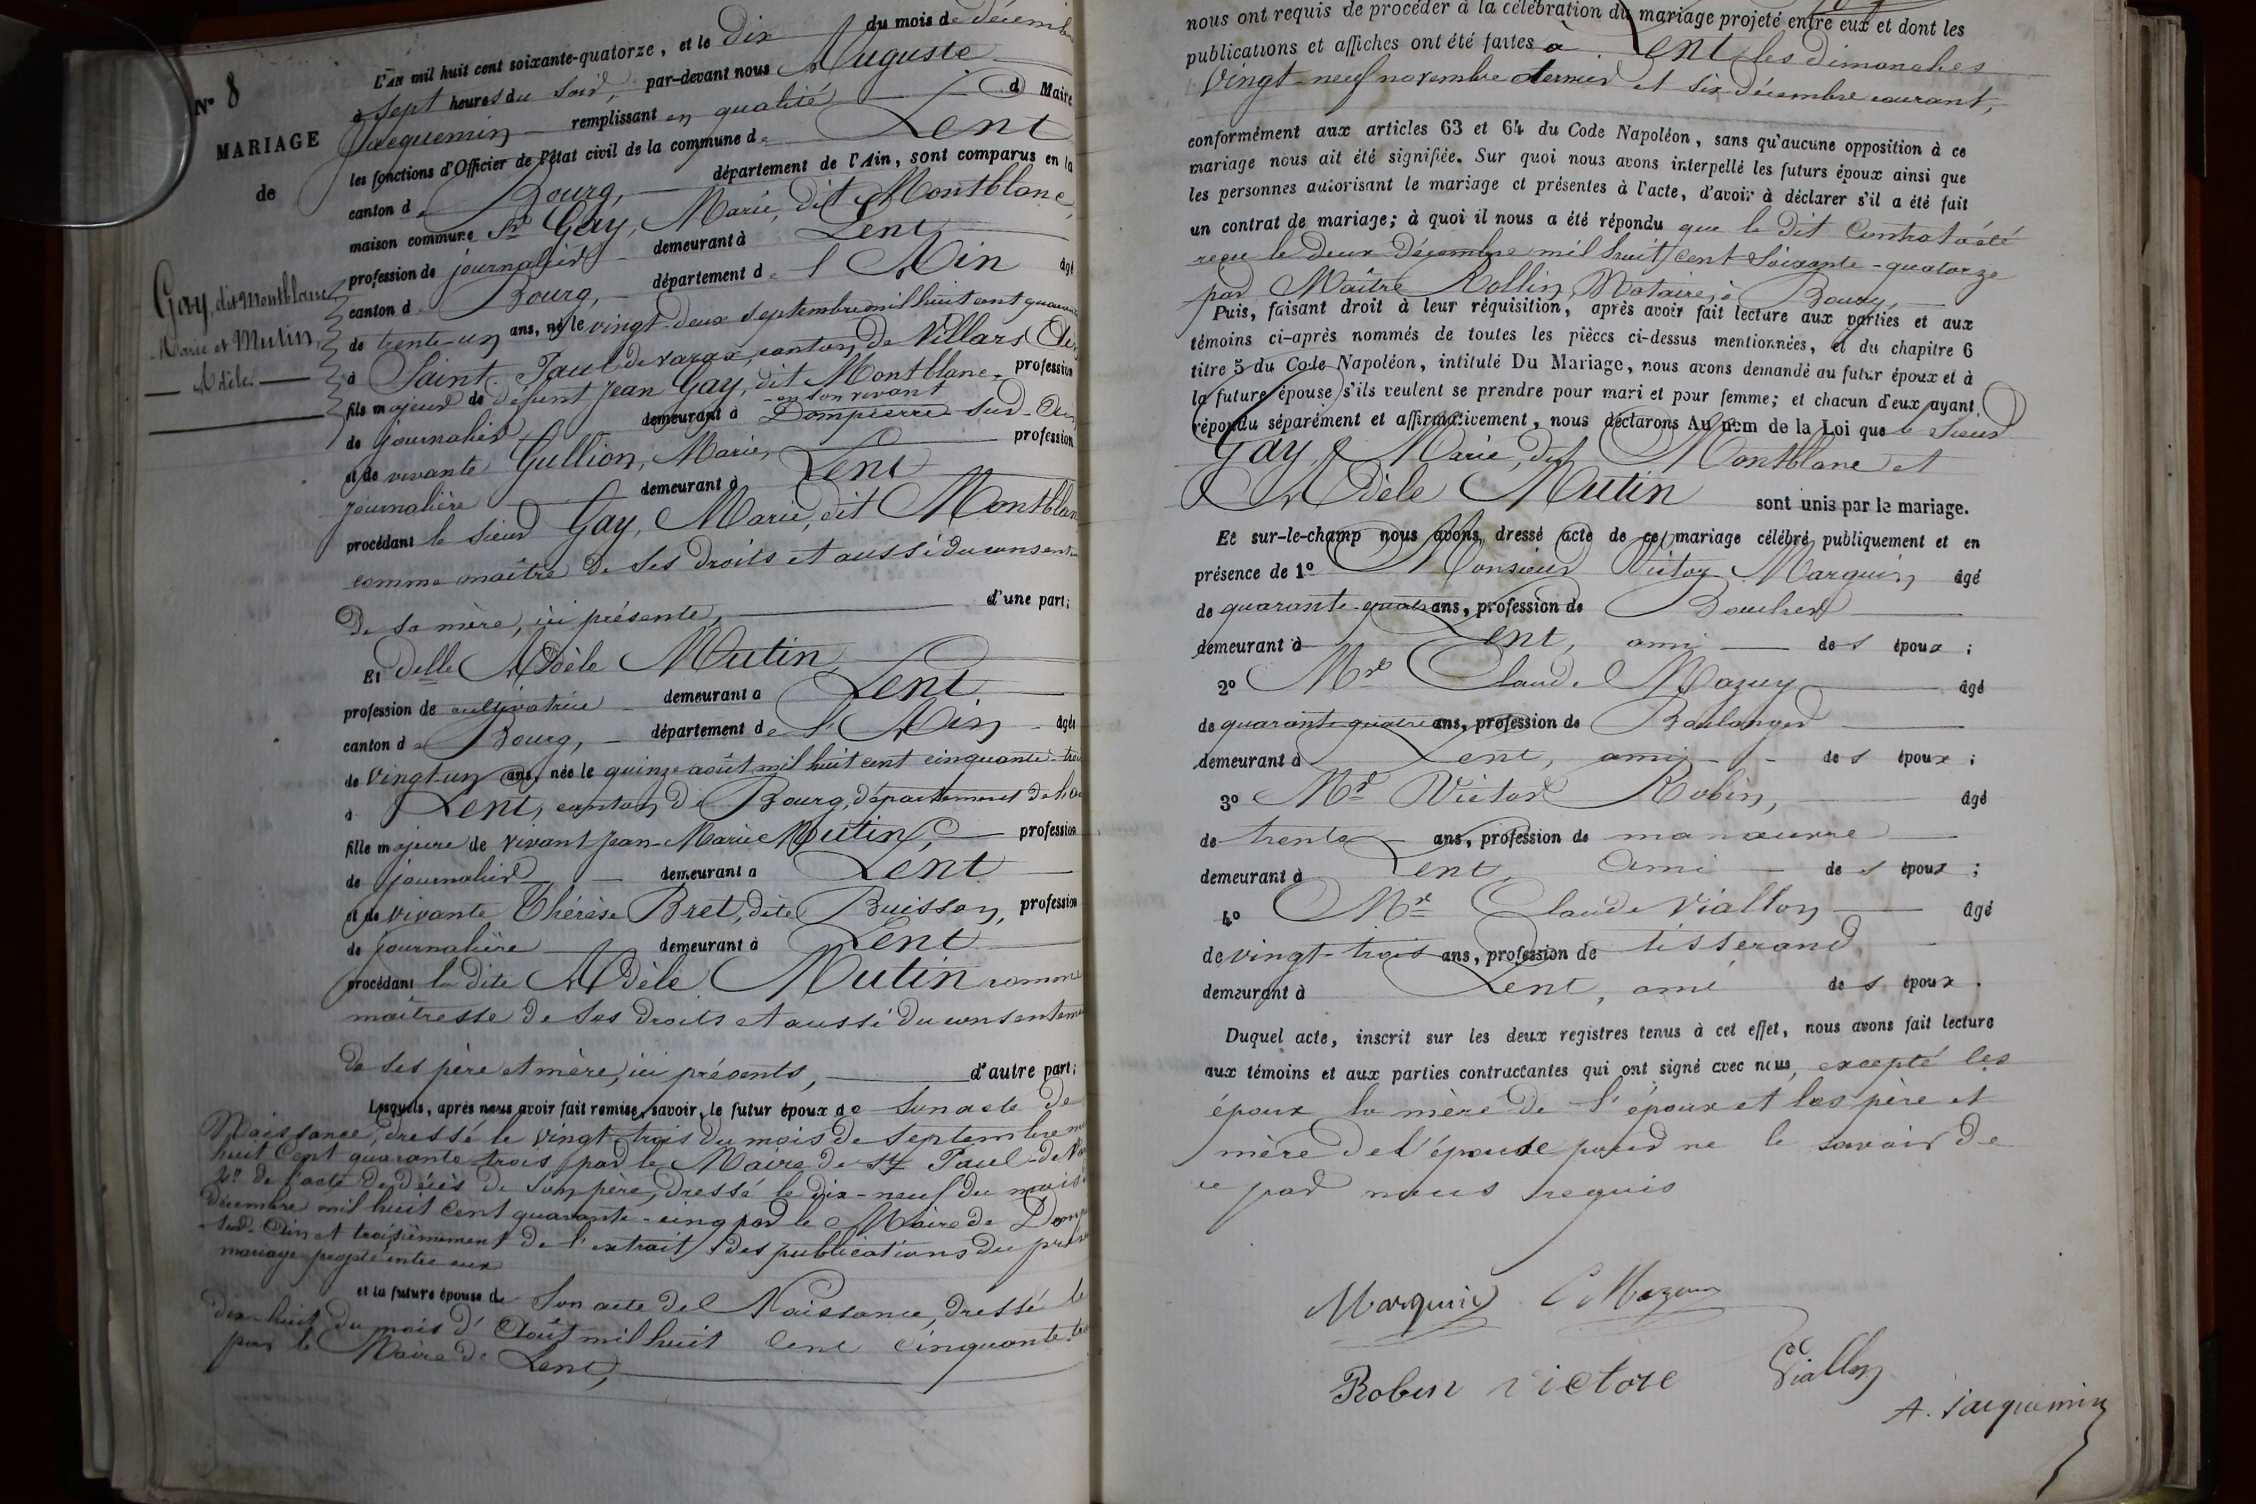 N° 8
MARIAGE
de
Gay, dit Montblanc
Marie et Mutin,
Adèle.
L'An mil huit cent soixante-quatorze, et le Dix du mois de décemb
à Sept heures du Soir, par-devant nous Auguste
Jacquemin remplissant en qualité d Maire
les fonctions d'Officier de l'état civil de la commune de Lent
canton de Bourg, département de l'Ain, sont comparus en la
maison commune Sr Gay, Marie, dit Montblanc,
profession de journalier demeurant à Lent,
canton de Bourg, département de l'Ain âgé
de trente-un ans, né le vingt-deux septembre mil huit cent quarante
à Saint-Paul-de-Varax, canton de Villars (Ain
fils majeur de défunt Jean Gay, dit Montblanc, profession
de journalier demeurant en son vivant à Dompierre-sur-Ain,
et de vivante Gullion, Marie, profession
journalière demeurant à Lent
procédant le sieur Gay, Marie, dit Montblanc
comme maître de ses droits et aussi du consent
de sa mère, ici présente, d'une part;
Et Delle Adèle Mutin,
profession de cultivatrice demeurant à Lent
canton de Bourg, département de l'Ain âgée
de Vingt-un ans, née le quinze août mil huit cent cinquante-trois
à Lent, canton de Bourg, département de l'Ain
fille majeure de vivant Jean-Marie Mutin, profession
de journalier demeurant à Lent
et de vivante Thérèse Bret, dite Buisson, profession
de journalière demeurant à Lent
procédant la dite Adèle Mutin comme
maîtresse de ses droits et aussi du consentement
de ses père et mère, ici présents, d'autre part;
Lesquels, après nous avoir fait remise, savoir, le futur époux de son acte de
Naissance, dressé le vingt-trois du mois de septembre m
huit Cent quarante-trois par le Maire de St Paul-de-Va
2° de l'acte de décès de son père, dressé le dix-neuf du mois
décembre mil huit cent quarante-cinq par le Maire de Domp
sur-Ain et troisièmement de l'extrait des publications du prés
mariage projeté entre eux
et la future épouse de Son acte de Naissance, dressé le
dix-huit du mois d'Août mil huit Cent Cinquante-tro
par le Maire de Lent,
nous ont requis de procéder à la célébration du mariage projeté entre eux et dont les
publications et affiches ont été faites à Lent les dimanches
Vingt-neuf novembre dernier et six décembre courant,
conformément aux articles 63 et 64 du Code Napoléon, sans qu'aucune opposition à ce
mariage nous ait été signifiée. Sur quoi nous avons interpellé les futurs époux ainsi que
les personnes autorisant le mariage et présentes à l'acte, d'avoir à déclarer s'il a été fait
un contrat de mariage; à quoi il nous a été répondu que le dit Contrat a été
reçu le deux Décembre mil huit cent soixante-quatorze
par Maître Rollin, Notaire à Bourg,
Puis, faisant droit à leur réquisition, après avoir fait lecture aux parties et aux
témoins ci-après nommés de toutes les pièces ci-dessus mentionnées, et du chapitre 6
titre 5 du Code Napoléon, intitulé Du Mariage, nous avons demandé au futur époux et à
la future épouse s'ils veulent se prendre pour mari et pour femme; et chacun d'eux ayant
répondu séparément et affirmativement, nous déclarons Au nom de la Loi que le Sieur
Gay, Marie, dit Montblanc et
Adèle Mutin sont unis par le mariage.
Et sur-le-champ nous avons dressé acte de ce mariage célébré publiquement et en
présence de 1° Monsieur Victor Marquin âgé
de quarante-quatre ans, profession de Boucher
demeurant à Lent, ami des époux;
2° Mr Claude Mazuy âgé
de quarante-quatre ans, profession de Boulanger
demeurant à Lent, ami des époux;
3° Mr Victor Robin, âgé
de trente ans, profession de manœuvre
demeurant à Lent, Ami des époux;
4° Mr Claude Viallon âgé
de vingt-trois ans, profession de tisserand
demeurant à Lent, ami des époux.
Duquel acte, inscrit sur les deux registres tenus à cet effet, nous avons fait lecture
aux témoins et aux parties contractantes qui ont signé avec nous, excepté les
époux la mère de l'époux et les père et
mère de l'épouse pour ne le savoir de
ce par nous requis
Marquin C Mazuy
Robin victore Viallon
A. Jacquemin